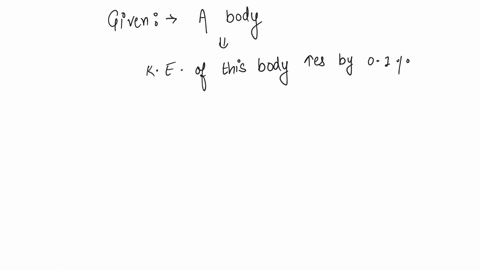 Given:→ A body
⇓
K.E. of this body ↑es by 0.1%